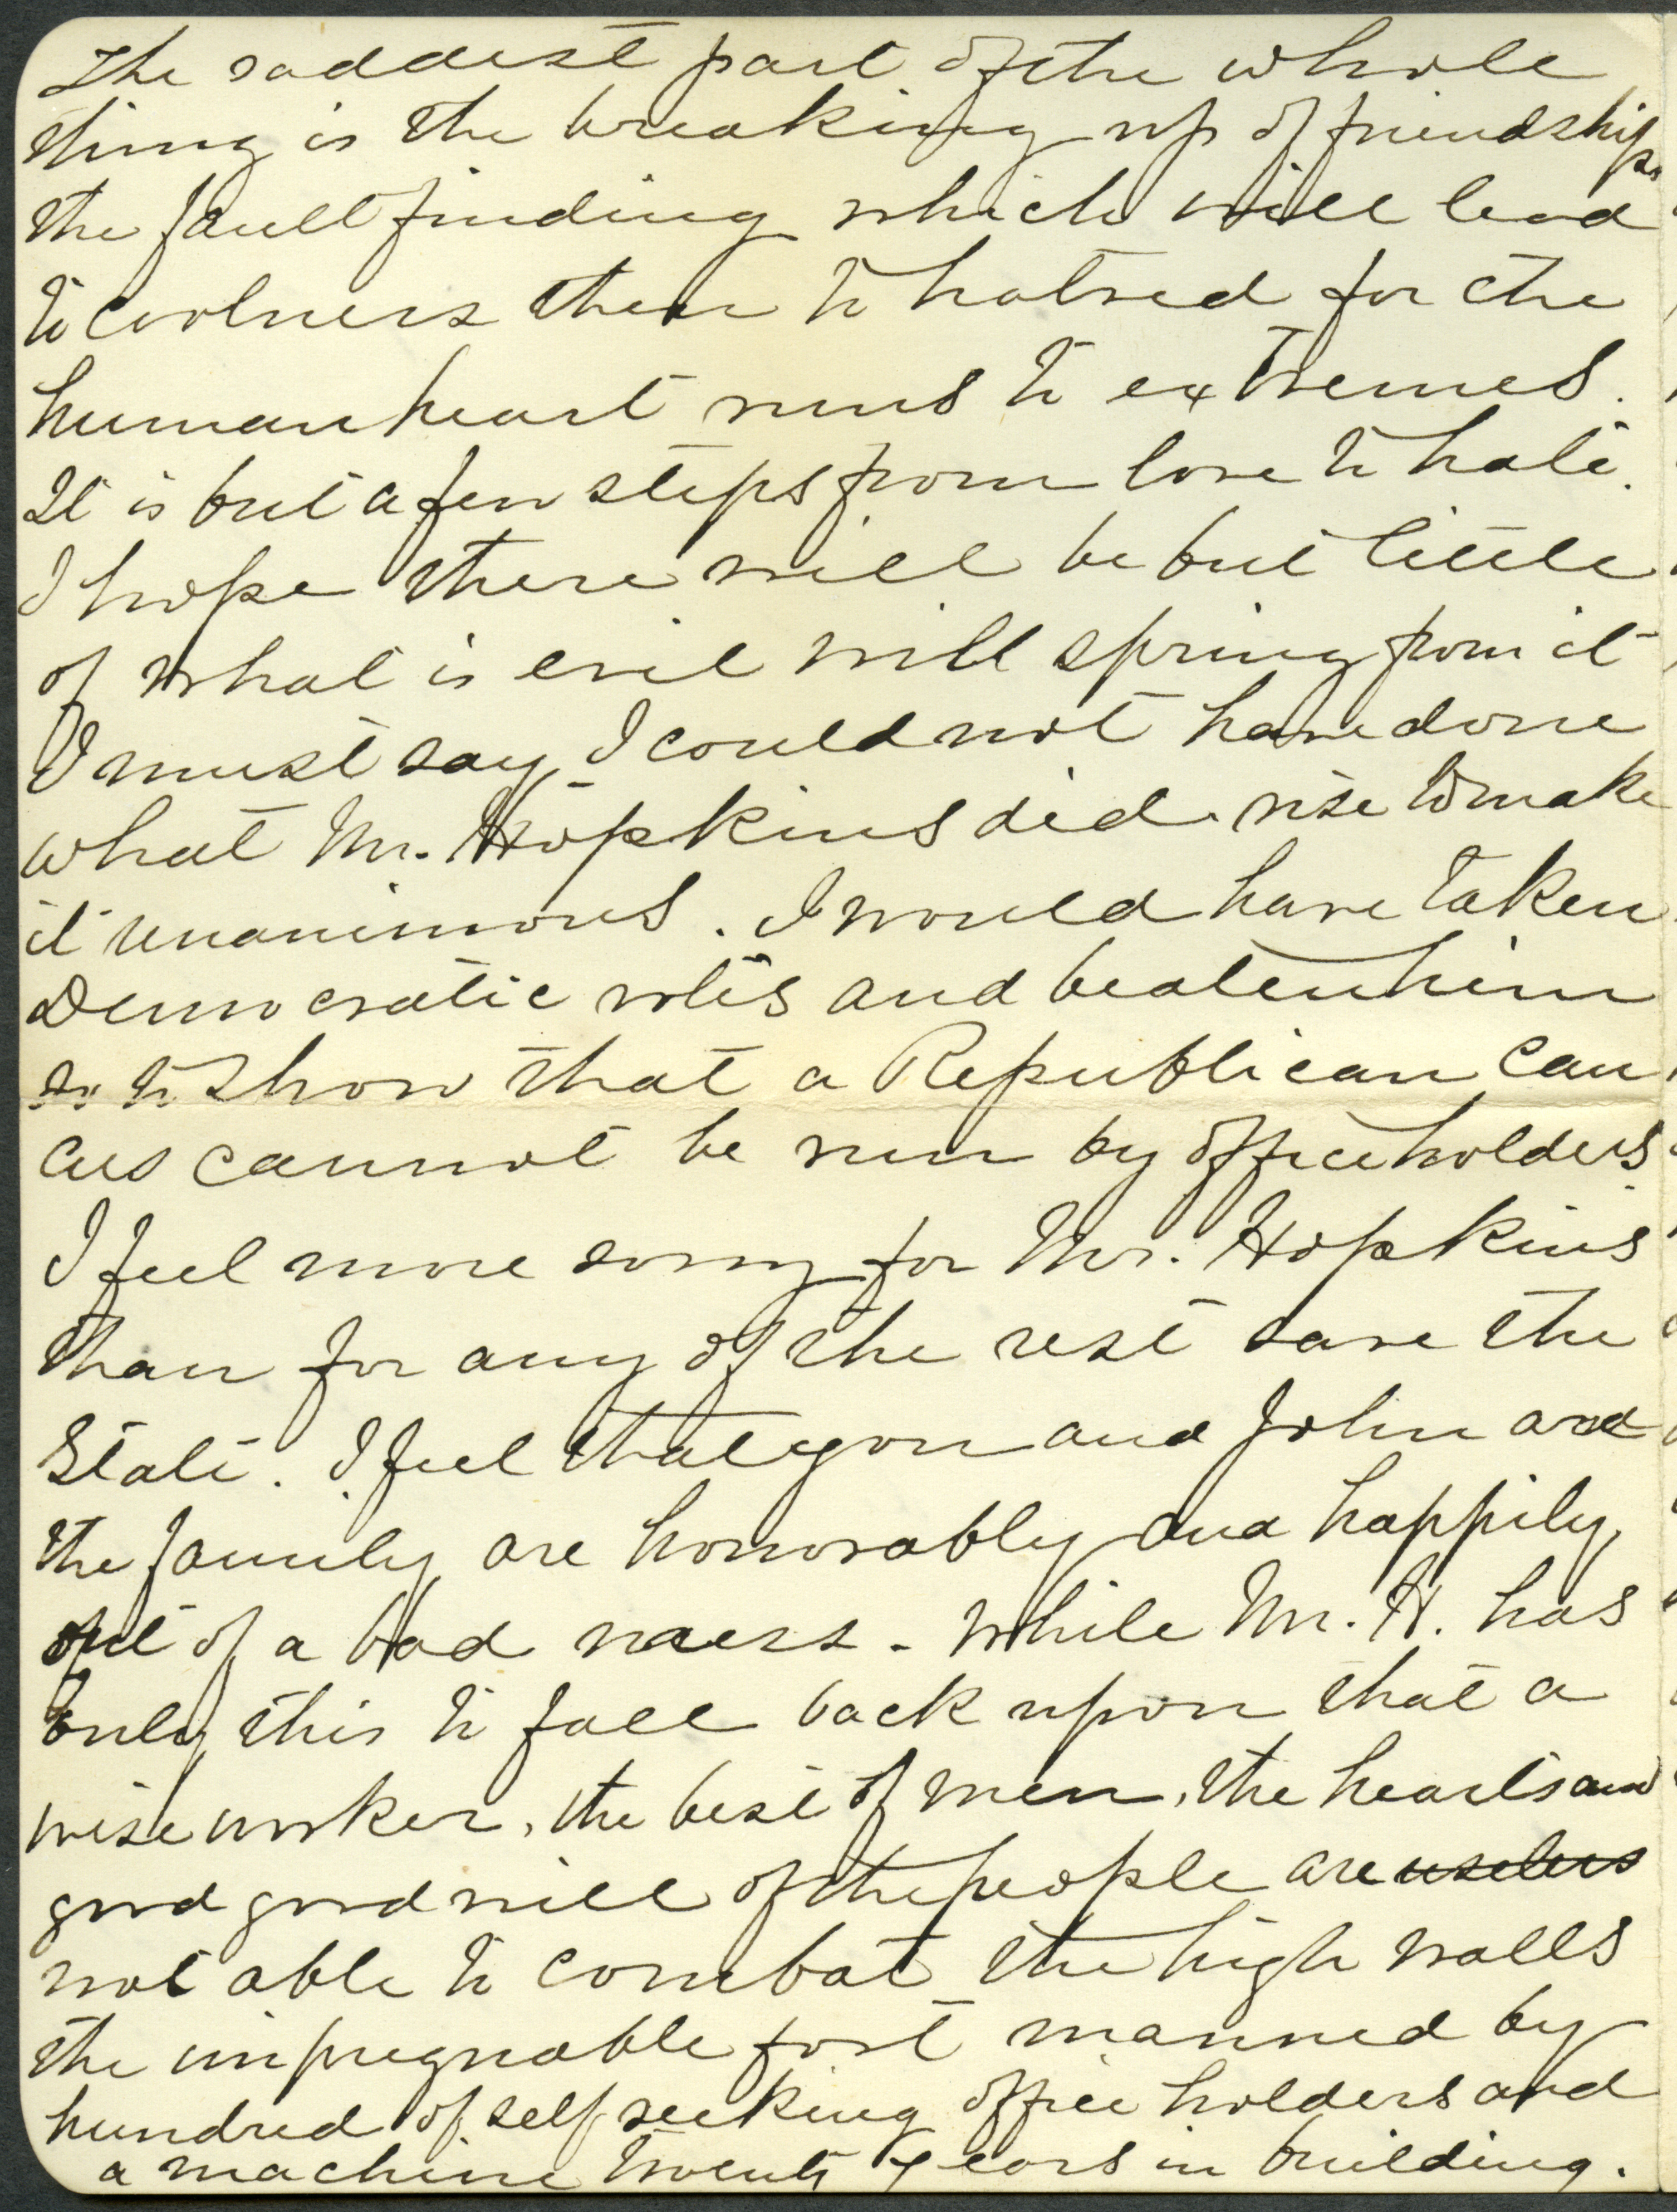 The saddest part of the whole
thing is the breaking up of friendships
the fault finding which will lead
to coolness then to hatred for the
human heart runs to extremes.
It is but a few steps from love to hate.
I hope there will be but little
of what is evil will spring from it
I must say, I could not have done
what Mr. Hopkins did. rise to make
it unanimous. I would have taken
Democratic votes and beaten him
so to show that a Republican cau
cus cannot be run by officeholders.
I feel more sorry for Mr. Hopkins
than for any of the rest save the
State. I feel that you and John and
the family are honorably and happily
out of a bad mess - while Mr. H. has
only this to fall back upon that a
wise worker, the best of men, the hearts and
good good will of the people are useless
not able to combat the high walls
the impregnable fort manned by
hundred of self seeking office holders and
a machine twenty years in building.